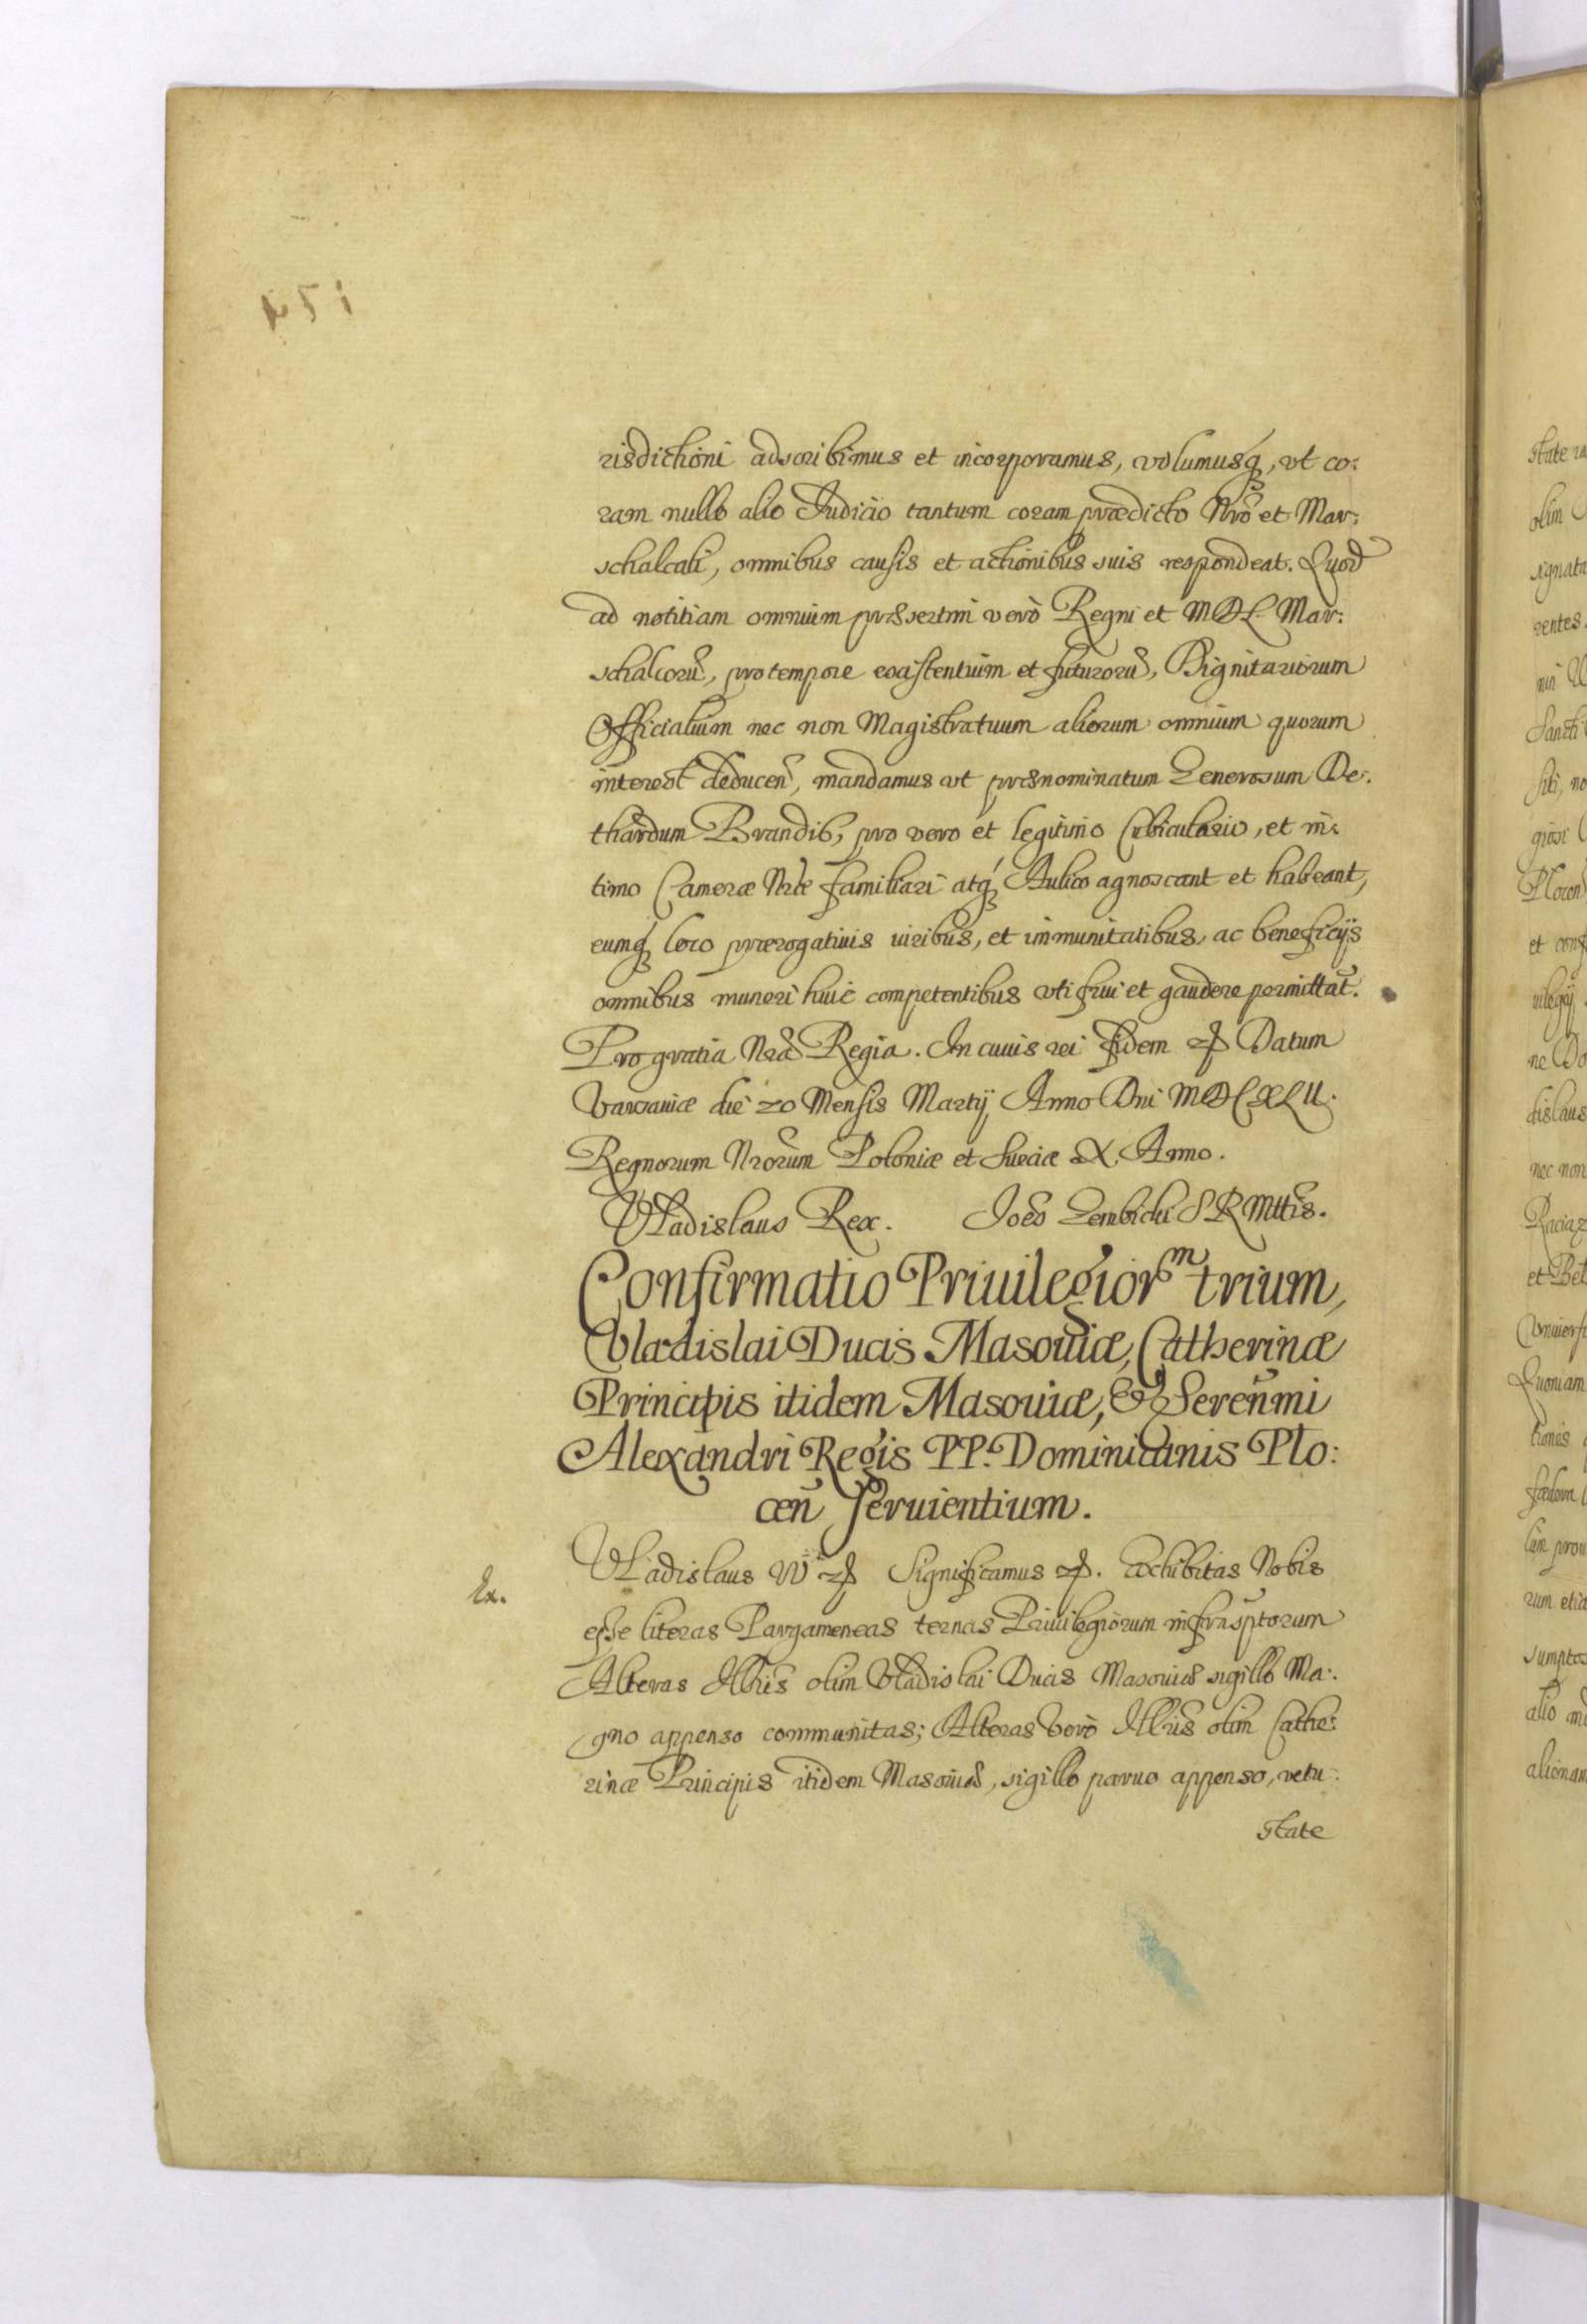 risdictioni adscribimus et incorporamus, volumusq, vt co:
ram nullo alio Judicio tantum coram prædicto Nro et Mar:
schalcali, omnibus causis et actionibus suis respondeat. Quod
ad notitiam omnium præsertim verò Regni et MDL Mar:
schalcorũ, pro tempore existentium et futurorũ, Dignitariorum
Officialium nec non Magistratuum aliorum omnium quorum
interest deducen, mandamus vt prænominatum Generosum De:
thardum Brandis, pro vero et legitimo Cubiculario, et in:
timo Cameræ Nræ familiari atq Aulico agnoscant et habeant,
eumq loco prærogatiuis iuribus, et immunitatibus, ac beneficijs
omnibus muneri huic competentibus vti frui et gaudere permittat.
Pro gratia Nra Regia. In cuius rei fidem & Datum
Varsauiæ die 20 Mensis Martij Anno Dni MDCXLII.
Regnorum Nrorum Poloniæ et Sueciæ X. Anno.
Vladislaus Rex. Joes Gembicki SRMttis.
Confirmatio Priuilegior^m trium,
Vladislai Ducis Masouiæ, Catherinæ
Principis itidem Masouiæ, & Serenmi
Alexandri Regis PP. Dominicanis Plo:
cen̄ seruientium.
Ex.
Vladislaus IVus & Significamus &. Exhibitas Nobis
esse literas Pargameneas ternas Priuilegiorum infrasptorum
Alteras Illris olim Vladislai Ducis Masouiæ sigillo Ma:
gno appenso communitas; Alteras verò Illris olim Cathe:
rinæ Principis itidem Masouiæ, sigillo paruo appenso, vetu:
state